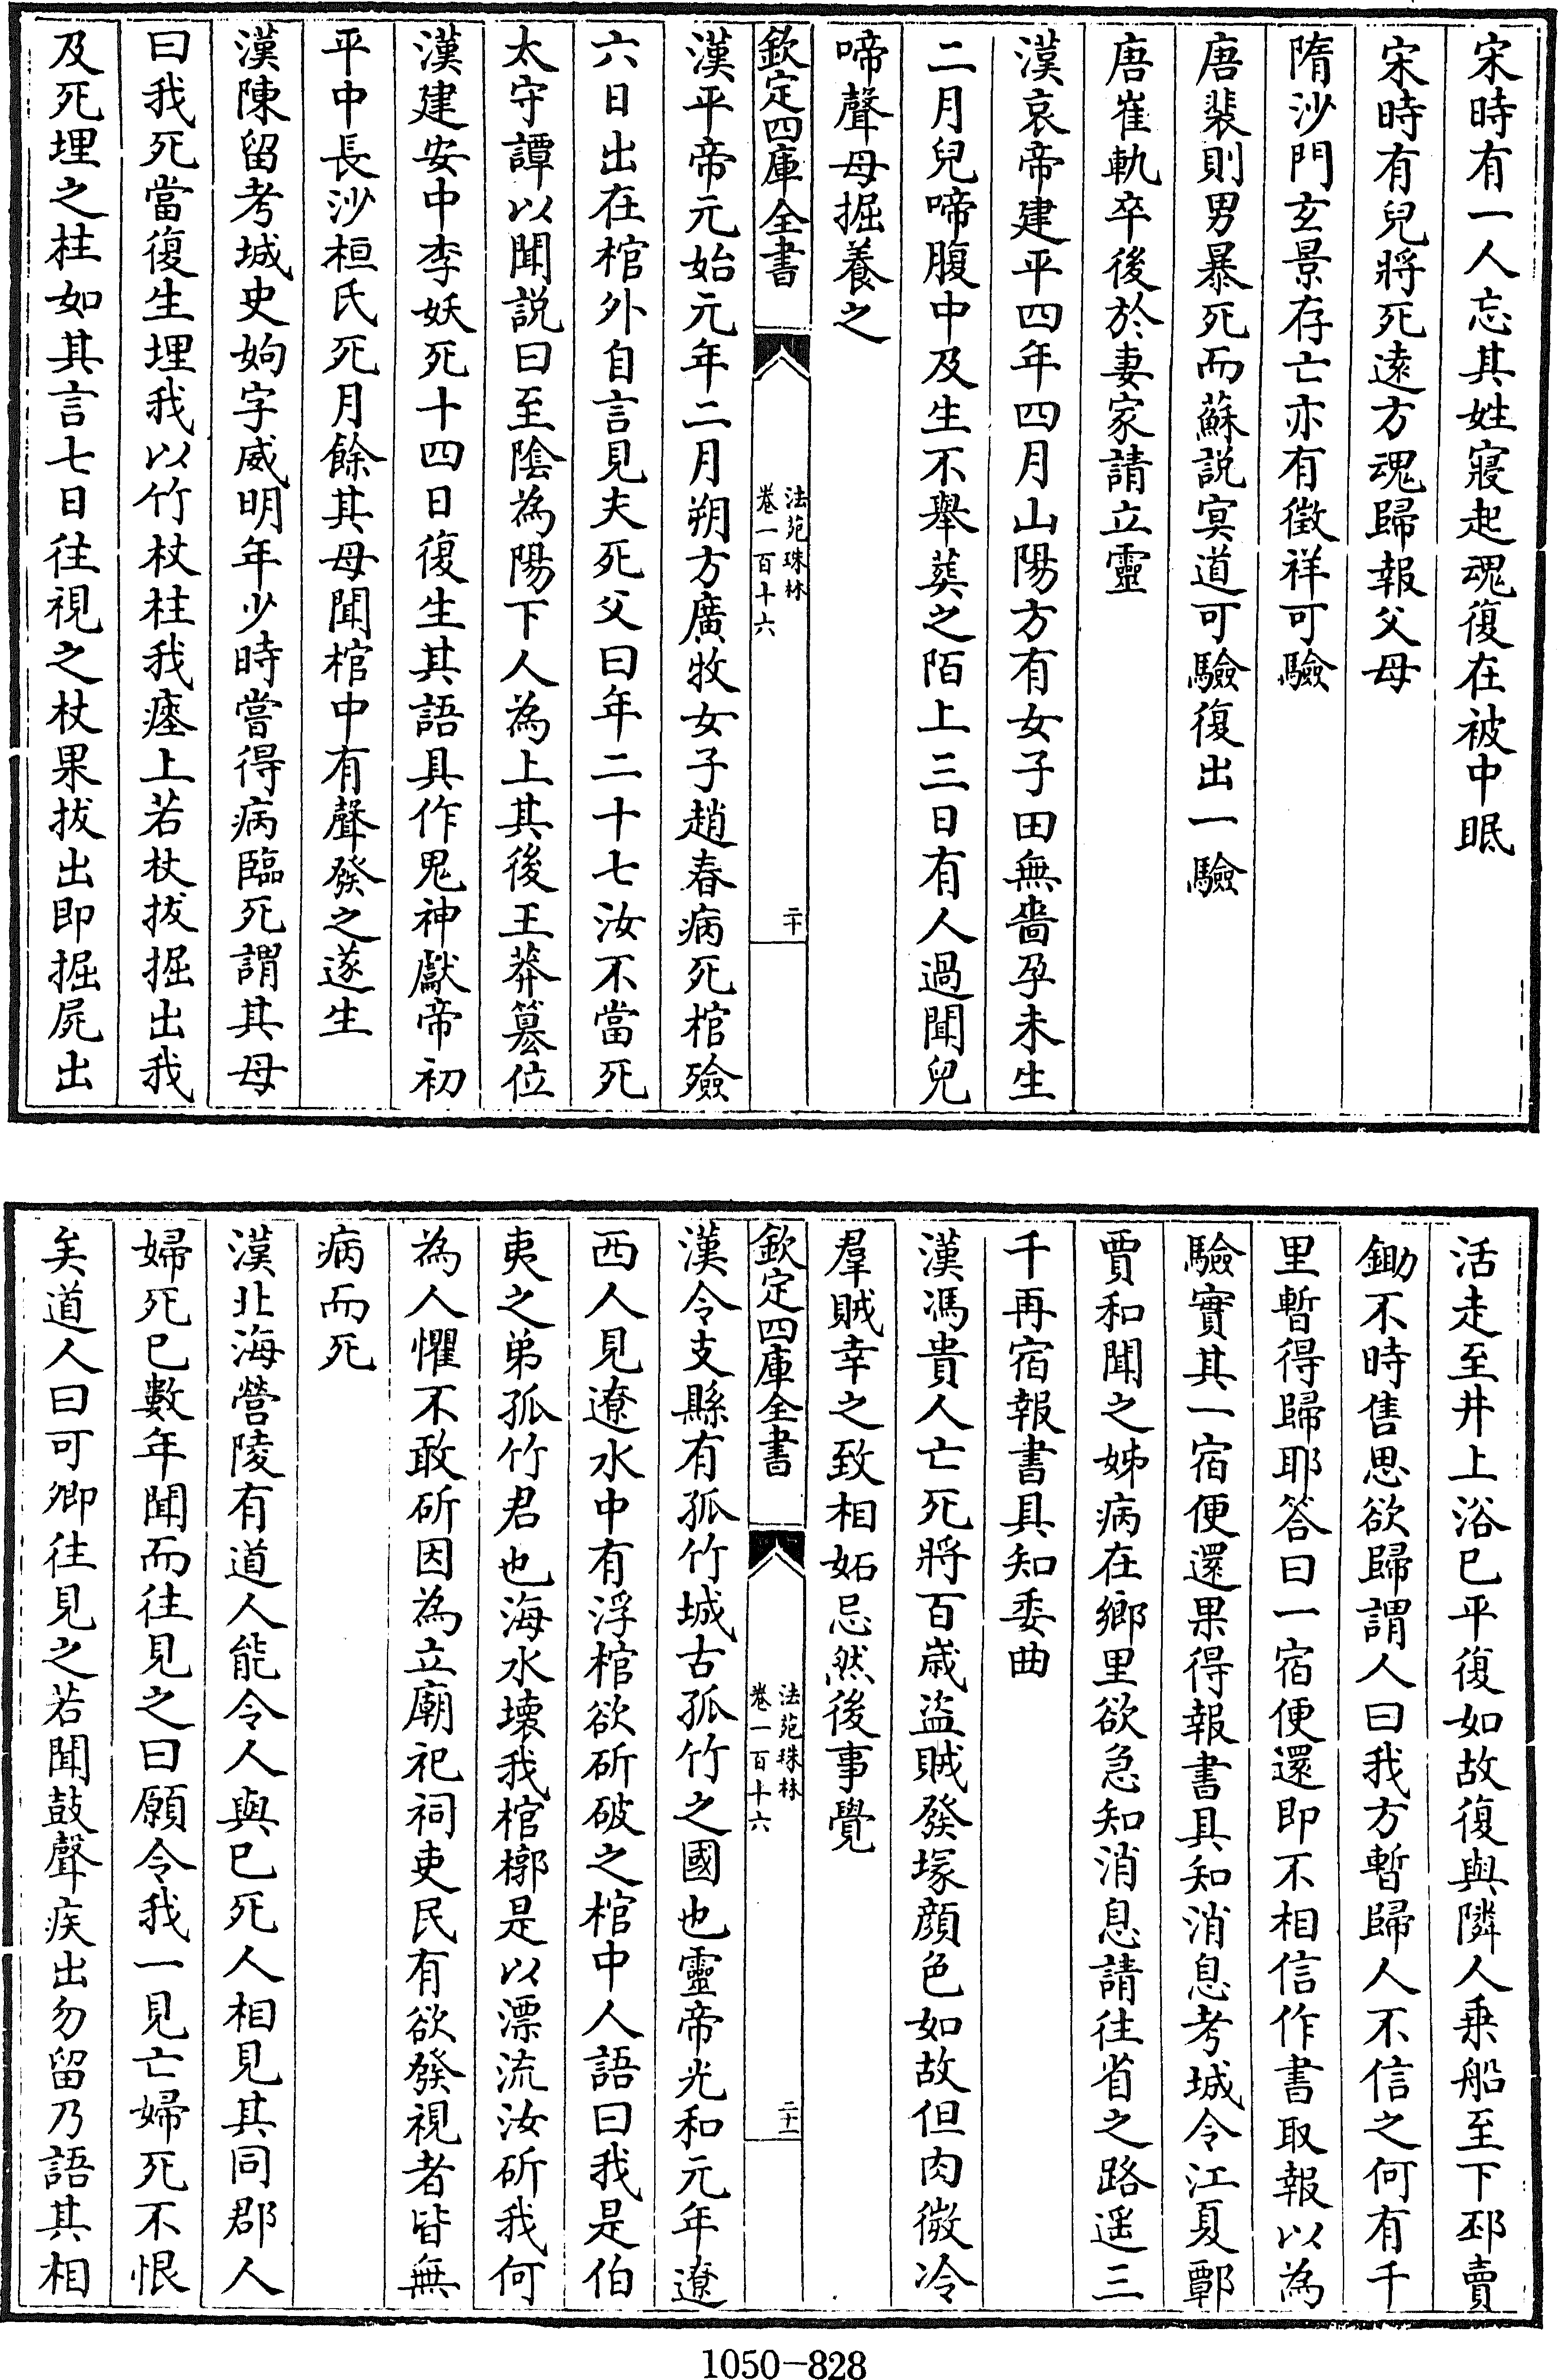 宋時有一人忘其姓寢起魂復在被中眠
宋時有兒將死遠方魂歸報父母
隋沙門玄景存亡亦有徵祥可驗
唐裴則男暴死而蘇説冥道可驗復出一驗
唐崔軌卒後於妻家請立靈
漢哀帝建平四年四月山陽方有女子田無嗇孕未生
二月兒啼腹中及生不舉葬之陌上三日有人過聞兒
啼聲母掘養之
欽定四庫全書
法苑珠林
卷一百十六
二十
漢平帝元始元年二月朔方廣牧女子趙春病死棺殮
六日出在棺外自言見夫死父曰年二十七汝不當死
太守譚以聞説曰至陰為陽下人為上其後王莽簒位
漢建安中李妖死十四日復生其語具作鬼神獻帝初
平中長沙桓氏死月餘其母聞棺中有聲發之遂生
漢陳留考城史姁字威明年少時嘗得病臨死謂其母
曰我死當復生埋我以竹杖柱我瘞上若杖拔掘出我
及死埋之柱如其言七日往視之杖果拔出即掘屍出
活走至井上浴已平復如故復與隣人乗船至下邳賣
鋤不時售思欲歸謂人曰我方暫歸人不信之何有千
里暫得歸耶答曰一宿便還即不相信作書取報以為
驗實其一宿便還果得報書具知消息考城令江夏鄳
賈和聞之姊病在鄉里欲急知消息請往省之路遥三
千再宿報書具知委曲
漢馮貴人亡死將百歲盜賊發塚顔色如故但肉微冷
羣賊幸之致相妬忌然後事覺
欽定四庫全書
法苑珠林
卷一百十六
二十一
漢令支縣有孤竹城古孤竹之國也靈帝光和元年遼
西人見遼水中有浮棺欲斫破之棺中人語曰我是伯
夷之弟孤竹君也海水壊我棺槨是以漂流汝斫我何
為人懼不敢斫因為立廟祀祠吏民有欲發視者皆無
病而死
漢北海營陵有道人能令人與已死人相見其同郡人
婦死已數年聞而往見之曰願令我一見亡婦死不恨
矣道人曰可卿往見之若聞鼓聲疾出勿留乃語其相
1050-828